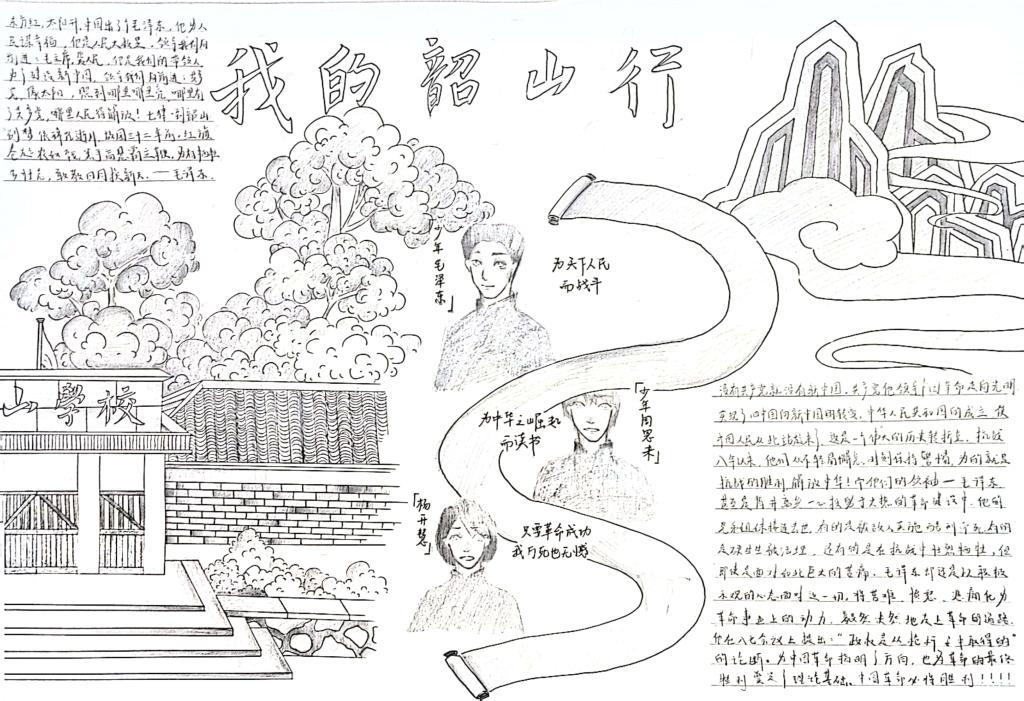 我的韶山行
东方红,太阳升,中国出了个毛泽东,他为人
民谋幸福,他是人民大救星,
前进:毛主席,爱人民,他是我们的带路人
为了建设新中国,领导我们向前进:共产
党,像太阳,照到哪里哪里亮,哪里有
了共产党,哪里人民得解放!七律·到韶山
别梦依稀咒逝川,故园三十二年前。红旗
为有牺牲
多壮志,敢教日月换新天。——毛泽东
「少年毛泽东」
为天下人民
而战斗
「少年周恩来」
为中华之崛起
而读书
「杨开慧」
只要革命成功
我万死也无憾
山學校
没有共产党就没有新中国。共产党他领导的革命走向光明
实现了旧中国向新中国的转变。中华人民共和国的成立,使
中国人民从此站起来了,这是一个伟大的历史转折点。抗战
八年以来,他们从不轻局,时刻保持警惕,为的就是
抗战的胜利,解放中华!令他们的领袖——毛泽东
的革命建设中,他的
亲无组体接连去世,有的反被敌人
还有的是在抗战中壮烈牺牲,但
即使是面对如此巨大的苦痛,毛泽东却还是以积极
乐观的心态面对这一切,将苦难、愤怒、悲痛化为
革命事业上的动力,毅然决然地走上革命的道路
他在八七会议上提出:“政权是从枪杆子中取得的”
的论断。为中国革命指明了方向,也为革命的最终
胜利奠定了理论基础。中国革命必将胜利!!!!